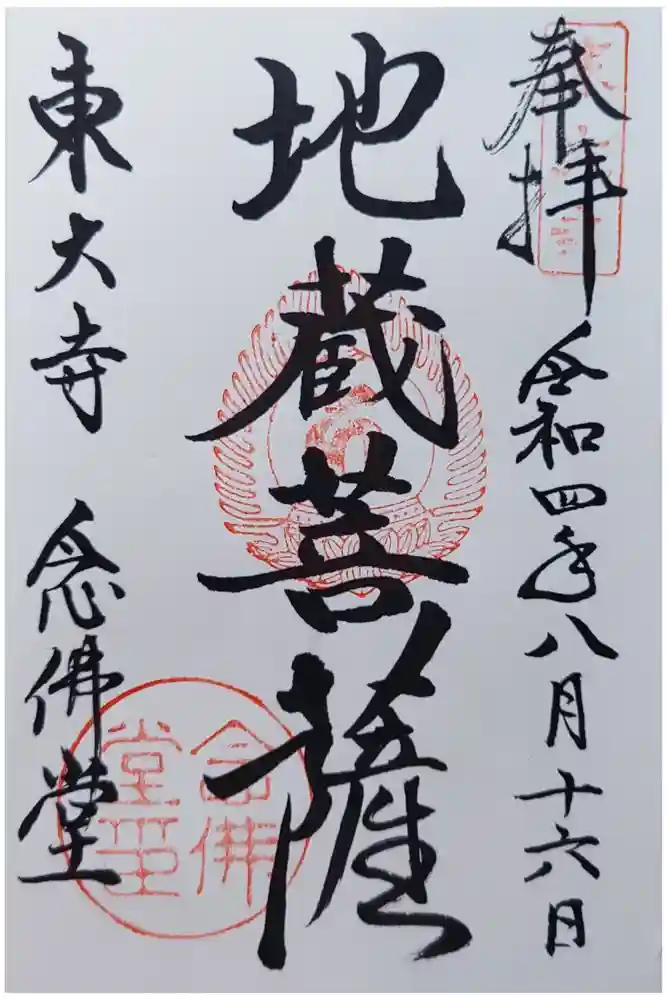 奉拝
令和四年八月十六日
地蔵菩薩
東大寺 念佛堂
念佛
堂印